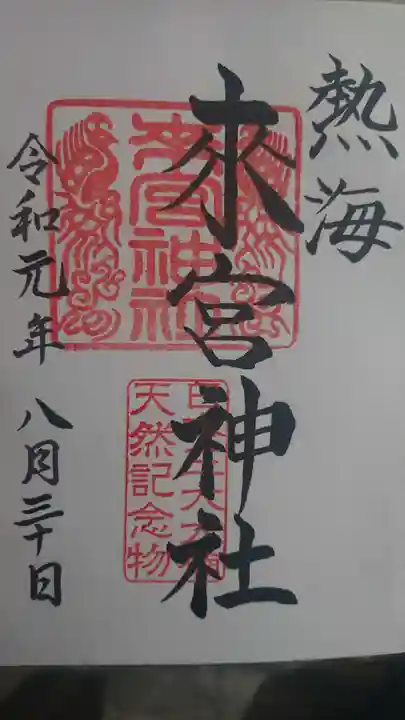 熱海
來宮神社
來宮神社
天然記念物
令和元年 八月三十日